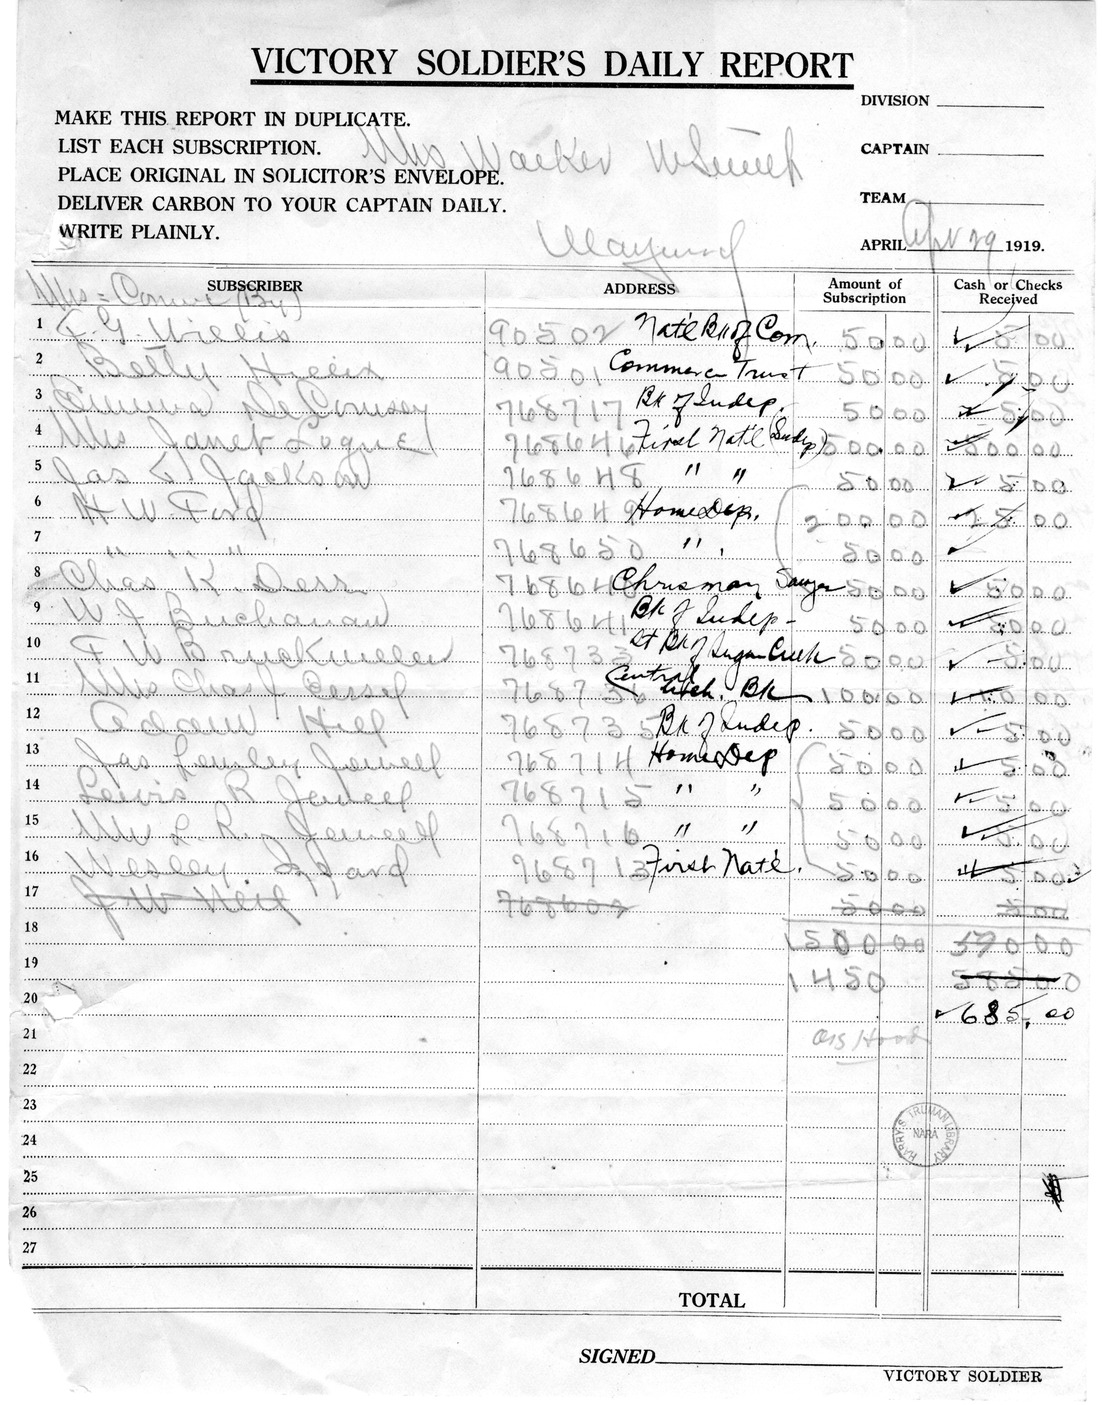 VICTORY SOLDIER'S DAILY REPORT
MAKE THIS REPORT IN DUPLICATE.
LIST EACH SUBSCRIPTION.
PLACE ORIGINAL IN SOLICITOR'S ENVELOPE.
DELIVER CARBON TO YOUR CAPTAIN DAILY.
WRITE PLAINLY.
Mrs Walker
Maywood
DIVISION
CAPTAIN
TEAM
APRIL Apr 29 1919.
SUBSCRIBER ADDRESS Amount of Subscription Cash or Checks Received
Mrs = (By)
1 Willis 90502 Nat'l Bk of Com. 50 00 5 00
2 Betty 90501 Commerce Trust 50 00 5 00
3 768717 Bk of Indep. 50 00 5 00
4 Mrs Janet 768646 First Nat'l (Indep) 500.00 500 00
5 Jas Jackson 768648 " " 50 00 5 00
6 H W Ford 768649 Home Dep. 200 00 25 00
7 " " " 768650 " . 50 00
8 Chas K. Derr Chrisman Sawyer 50 00 50 00
9 W J Buchanan 768641 Bk of Indep - 50 00 50 00
10 F W St Bk of Sugar Creek 50 00 5 00
11 Mrs Chas Central Exch. Bk 100 00 10 00
12 Adam Hill 768735 Bk of Indep. 50 00 5 00
13 Jas Jewell 768714 Home Dep 50 00 5 00
14 Lewis R Jewell 768715 " " 50 00 5 00
15 Mrs L R. Jewell 768716 " " 50 00 5 00
16 Wesley 768713 First Nat'l. 50 00 5 00
17 J W Neil 50 00 5 00
18 1500 00 590 00
19 1450 585 00
20 685.00
21
22
23
24
25
26
27
HARRY S. TRUMAN LIBRARY
NARA
TOTAL
SIGNED
VICTORY SOLDIER